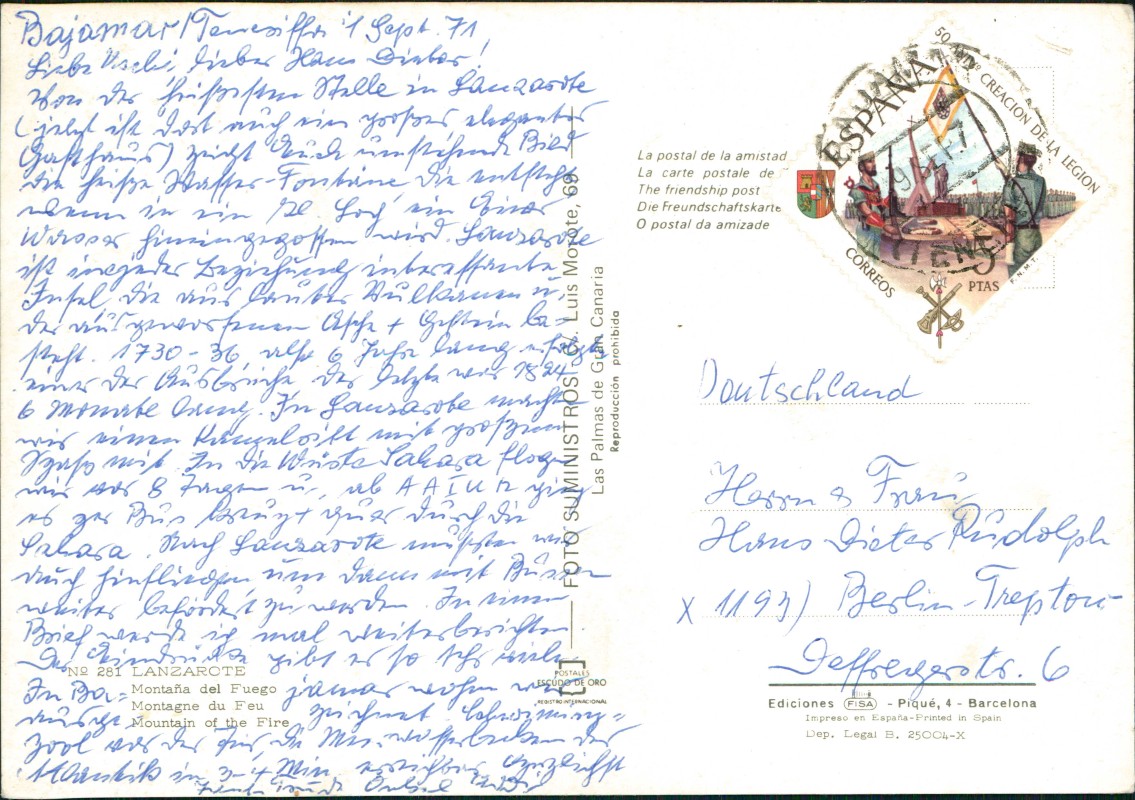 Bajamar/Teneriffa 1 Sept. 71
Liebe Uschi, lieber Hans Dieter!
Von der heißesten Stelle in Lanzarote
(jetzt ist dort auch ein großes elegantes
Gasthaus) zeigt Euch umstehende Bild
die heiße Wasser-Fontäne die entsteht
wenn in ein Loch ein Eimer
Wasser hineingegossen wird. Lanzarote
ist in jeder Beziehung interessante
Insel, die aus lauter Vulkanen u.
der ausgeworfenen Asche + Gestein be-
steht. 1730-36 also 6 Jahre lang erfolgte
einer der Ausbrüche, der letzte war 1824
6 Monate lang. In Lanzarote machten
wir einen Kamelritt mit großem
Spaß mit. In die Wüste Sahara flogen
wir vor 8 Tagen u. ab AAIUN ging
es per Bus kreuz + quer durch die
Sahara. Nach Lanzarote mußten wir
auch hinfliegen um dann mit Bussen
weiter befördert zu werden. In einem
Brief werde ich mal weiterberichten.
Der Eindrücke gibt es so sehr viele.
In Ba- jamar wohnen wir
ausge- zeichnet. Schwimm-
pool vor der Tür, die Meerwasserbecken des
Atlantik in 3-4 Min. erreichbar. Herzlichst
Tante u. Onkel
Nº 281 LANZAROTE
Montaña del Fuego
Montagne du Feu
Mountain of the Fire
FOTO SUMINISTROS - C. Luis Morote, 69
Las Palmas de Gran Canaria
Reproducción prohibida
POSTALES
ESCUDO DE ORO
REGISTRO INTERNACIONAL
La postal de la amistad
La carte postale de
The friendship post
Die Freundschaftskarte
O postal da amizade
50 ANIVº CREACION DE LA LEGION
ESPAÑA
CORREOS
5
PTAS
F.N.M.T.
Deutschland
Herrn & Frau
Hans Dieter Rudolph
X 1193) Berlin-Treptow
Deffreggerstr. 6
Ediciones FISA - Piqué, 4 - Barcelona
Impreso en España-Printed in Spain
Dep. Legal B. 25004-X